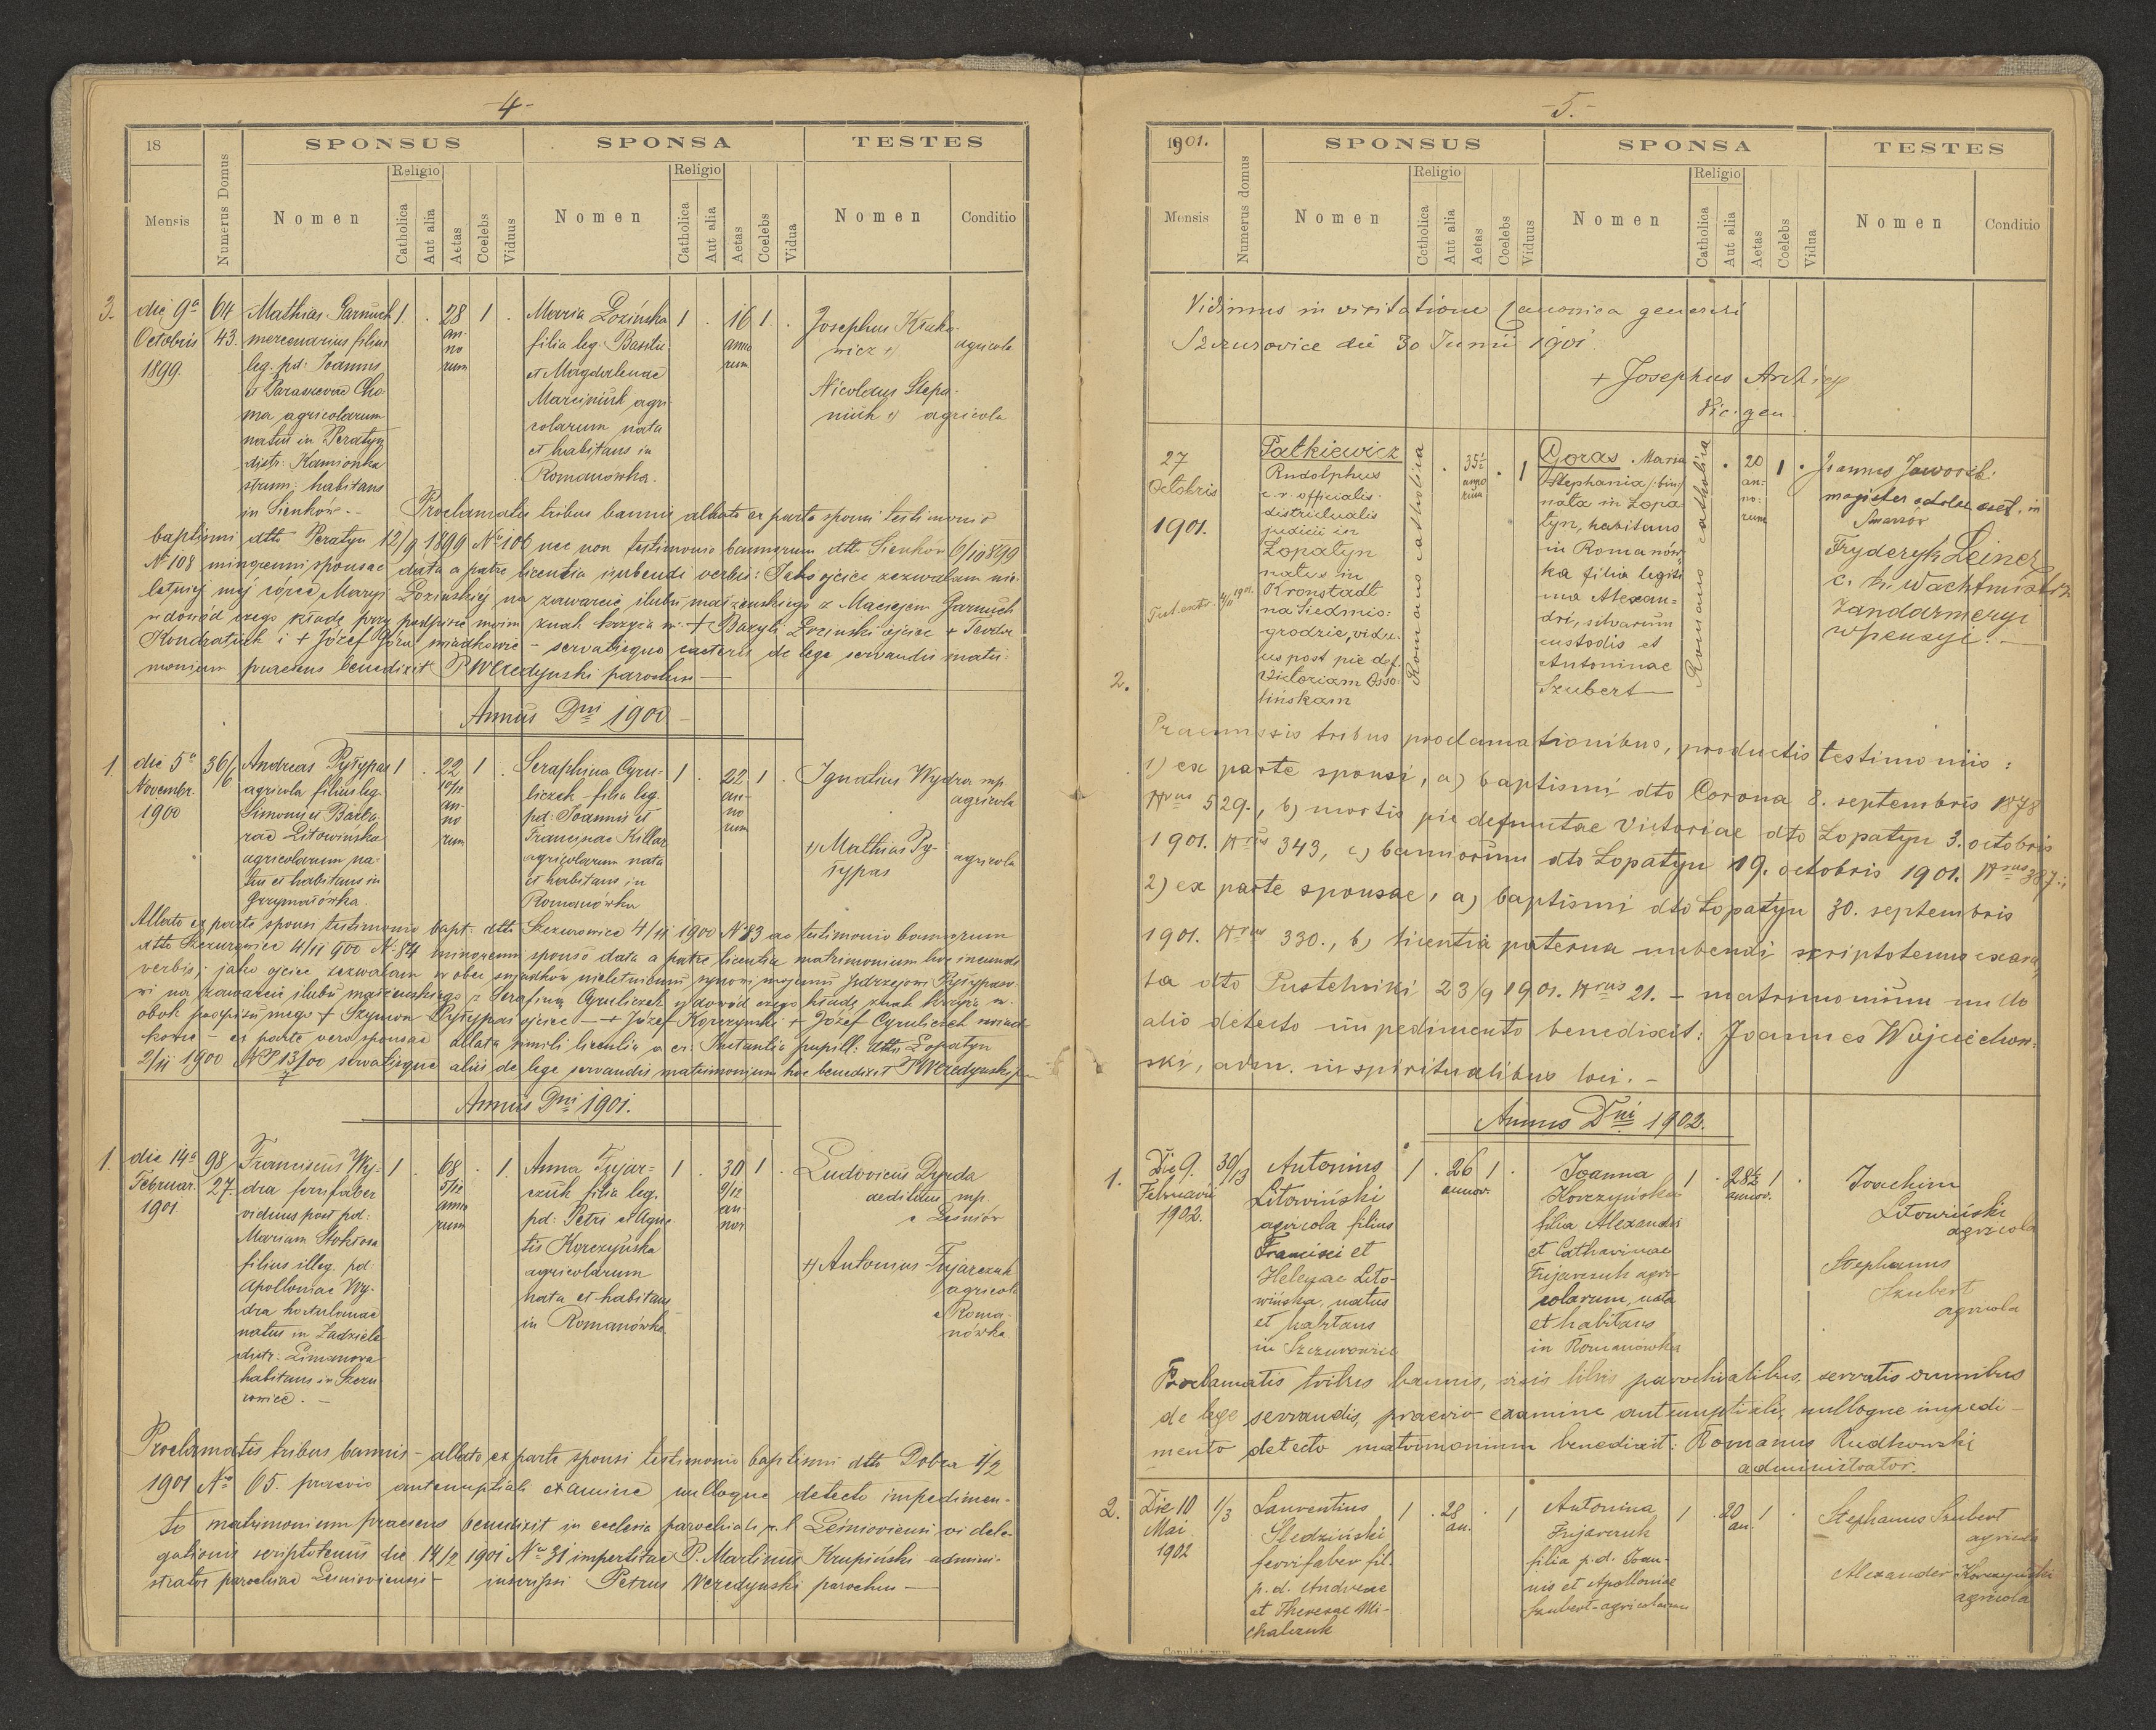 -4-
18
SPONSUS
SPONSA
TESTES
Mensis
Numerus Domus
Nomen
Religio
Catholica
Aut alia
Aetas
Coelebs
Viduus
Nomen
Religio
Catholica
Aut alia
Aetas
Coelebs
Vidua
Nomen
Conditio
3.
die 9ª
Octobris
1899.
64
43.
Mathias Garnuch
mercenarius filius
leg. pd: Joannis
et Parascevae Cho-
ma agricolarum
natus in Peratyn
distr: Kamionka
strum: habitans
in Sienków. -
1 . 28 1 .
an-
no
rum
Maria Łozińska
filia leg. Basilii
et Magdalenae
Marciniuk agri-
colarum nata
et habitans in
Romanówka.
1 . 16 1 .
anno
rum
Josephus Kruko-
wicz +)
agricola
Nicolaus Stepa-
niuk +) agricola
Proclamatis tribus bannis allato ex parte sponsi testimonio
baptismi dtto Peratyn 12/9 1899 Nº 106 nec non testimonio bannorum dtto Sienków 6/10 899
Nº 108 minorenni sponsae data a patre licentia nubendi verbis: Jako ojciec zezwalam nie-
letniej mej córce Maryi Łozińskiej na zawarcie ślubu małżeńskiego z Maciejem Garnuch
w dowód czego kładę przy podpisie moim znak krzyża św. + Bazyli Łoziński ojciec + Teodor
Kondratiuk i + Józef Góra świadkowie - servatisque caeteris de lege servandis matri-
monium praesens benedixit PWeredyński parochus -
Annus Dni 1900 -
1.
die 5ª
Novembr.
1900
36/6
Andreas Pytypas
agricola filius leg.
Simonis et Barba-
rae Litowińska
agricolarum na-
tus et habitans in
Grzymałówka.
1 . 22 1 .
10/12
an-
no
rum
Seraphina Cyru-
liczek - filia leg.
pd: Joannis et
Franciscae Killar
agricolarum nata
et habitans in
Romanówka
1 . 22 . 1 .
an-
no
rum
Ignatius Wydra mp
agricola
+) Mathias Py-
typas
agricola
Allato ex parte sponsi testimonio bapt. dtto Szczurowice 4/11 1900 Nº 83 ac testimonio bannorum
dtto Szczurowice 4/11 900 Nº 84 minorenni sponso data a patre licentia matrimonium hoc ineundi
verbis: jako ojciec zezwalam w obec świadków nieletniemu synowi mojemu Jędrzejowi Pytypaso-
wi na zawarcie ślubu małżeńskiego z Serafiną Cyruliczek w dowód czego kładę znak krzyża św.
obok podpisu mego + Szymon Pytypas ojciec - + Józef Korczyński + Józef Cyruliczek świad-
kowie - ex parte vero sponsae allata simili licentia a cr: Instantia pupill: dtto Łopatyn
2/11 1900 NP 13/00 servatisque aliis de lege servandis matrimonium hoc benedixit PWeredyński
Annus Dni 1901.
1.
die 14ª
Februar.
1901
98
27.
Franciscus Wy-
dra ferrifaber
viduus post pd:
Mariam Stokłosa
filius illeg. pd:
Apolloniae Wy-
dra hortulanae
natus in Zadziele
distr: Limanova
habitans in Szczu-
rowice. -
1 . 68 . 1
5/12
anno
rum
Anna Fryjar-
czuk filia leg.
pd: Petri et Agne-
tis Korczyńska
agricolarum
nata et habitans
in Romanówka
1 . 30 1 .
9/12
an-
nor.
Ludovicus Dyrda
aedilitus mp.
e Leśniów
+) Antonius Fryjarczuk
agricola
e Roma-
nówka.
Proclamatis tribus bannis - allato ex parte sponsi testimonio baptismi dtto Dobra 1/2
1901 Nº 65. praevio antenuptiali examine nulloque detecto impedimen-
to matrimonium praesens benedixit in ecclesia parochiali r. l. Leśnioviensi vi dele-
gationis scriptotenus die 14/2 1901 Nº 31 impertitae P. Martinus Krupiński admini-
strator parochiae Lesnioviensis - inscripsi Petrus Weredyński parochus -
-5.-
1901.
SPONSUS
SPONSA
TESTES
Mensis
Numerus domus
Nomen
Religio
Catholica
Aut alia
Aetas
Coelebs
Viduus
Nomen
Religio
Catholica
Aut alia
Aetas
Coelebs
Vidua
Nomen
Conditio
Vidimus in visitatione Canonica generali
Szczurovice die 30 Junii 1901.
+ Josephus Archiep
Vic. gen.
2.
27
Octobris
1901.
Fatkiewicz
Rudolphus
c. r. officialis
districtualis
judicii in
Łopatyn
natus in
Kronstadt
na Siedmio-
grodzie, vidu-
us post pie def.
Victoriam Osso-
lińskam
Romano catholica
. 35½ . 1
anno
rum
Goras . Maria
Stephania (: bin:)
nata in Łopa-
tyn, habitans
in Romanów-
ka filia legiti-
ma Alexan-
dri, silvarum
custodis et
Antoninae
Szubert
Romano catholica
. 20 1 .
an-
no-
rum
Joannes Jaworsk.
magister
Smarzów
Fryderyk Leiner
c. k. Wachtmistrz
żandarmeryi
w pensyi. -
Praemissis tribus proclamationibus, productis testimoniis:
1) ex parte sponsi, a) baptismi dto Corona 8. septembris 1878
Nrus 529., b) mortis pie defunctae Victoriae dto Łopatyn 3. octobris
1901. Nrus 343, c) bannorum dto Łopatyn 19. octobris 1901. Nrus 387.;
2) ex parte sponsae, a) baptismi dto Łopatyn 30. septembris
1901. Nrus 330., b) licentia paterna nubendi scriptotenus exara-
ta dto Pustelniki 23/9 1901. Nrus 21. - matrimonium nullo
alio detecto impedimento benedixit: Joannes Wojciechow-
ski, adm. in spiritualibus loci. -
Annus Dni 1902.
1.
Die 9.
Februarii
1902.
30/13
Antonius
Litowiński
agricola filius
Francisci et
Helenae Lito-
wińska, natus
et habitans
in Szczurowice
1 . 26 1 .
annor.
Joanna
Korczyńska
filia Alexandri
et Catharinae
Fryjarczuk agri-
colarum, nata
et habitans
in Romanówka
1 . 28½ 1 .
annor.
Joachim
Litowiński
agricola
Stephanus
Szubert
agricola
Proclamatis tribus bannis, visis libris parochialibus, servatis omnibus
de lege servandis, praevio examine antenuptiali, nulloque impedi-
mento detecto matrimonium benedixit: Romanus Rudkowski
administrator.
2.
Die 10
Mai
1902
1/3
Laurentius
Śledziński
ferrifaber fil.
p. d. Andreae
et Theresae Mi-
chalczuk
1 . 28 . 1
an.
Antonina
Fryjarczuk
filia p. d. Joan-
nis et Apolloniae
Szubert - agricolarum
1 . 20 1 .
an.
Stephanus Szubert
agricola
Alexander Korczyński
agricola